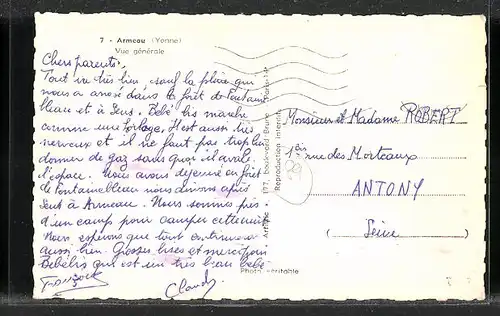 7 - Armeau (Yonne)
Vue générale
Chers parents.
Tout va très bien, sauf la pluie qui
nous a arrosé dans la forêt de Fontaine
bleau et à Sens. Bébé lis marche
comme une horloge. Il est aussi très
nerveux et il ne faut pas trop lui
donner de gaz sans quoi il avale
l'espace. Nous avons déjeuné en forêt
de Fontainebleau nous dinons après
Sens à Armeau. Nous sommes près
d'un camp pour camper cette nuit.
Nous espérons que tout continuera
aussi bien. Grosses bises et merci pour
Bébélis qui est un très beau bébé
Claude
Monsieur et Madame ROBERT
1 bis rue des Morteaux
ANTONY
Seine
Photo véritable
Reproduction interdite
177, Boulevard